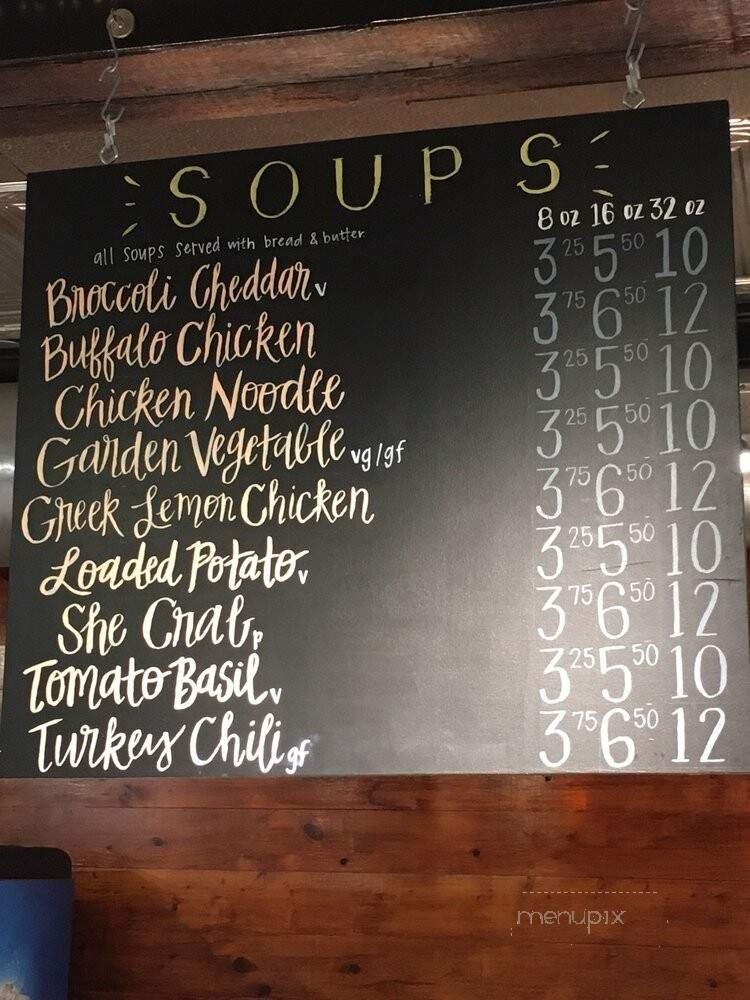 SOUPS
8 oz 16 oz 32 oz
all soups served with bread & butter
Broccoli Cheddar v 3 25 5 50 10
Buffalo Chicken 3 75 6 50 12
Chicken Noodle 3 25 5 50 10
Garden Vegetable vg/gf 3 25 5 50 10
Greek Lemon Chicken 3 75 6 50 12
Loaded Potato v 3 25 5 50 10
She Crab p 3 75 6 50 12
Tomato Basil v 3 25 5 50 10
Turkey Chili gf 3 75 6 50 12
menupix